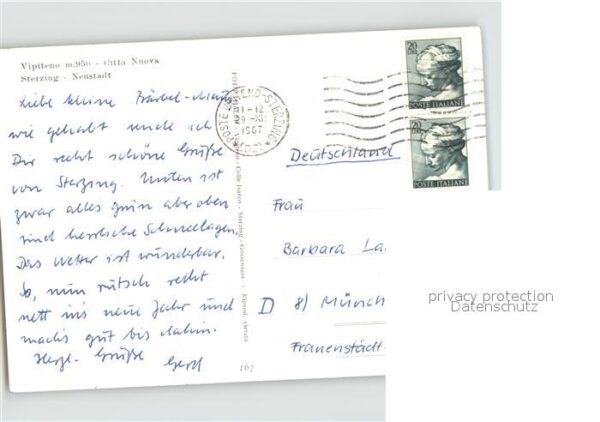 Vipiteno m.950 - Citta Nuova
Sterzing - Neustadt
Liebe kleine Bärbel-Maus
wie gehabt sende ich
Dir recht schöne Grüße
von Sterzing. Unten ist
zwar alles grün aber oben
sind herrliche Schneelagen.
Das Wetter ist wunderbar.
So, nun rutsch recht
nett ins neue Jahr und
mach's gut bis dahin.
Herzl. Grüße
Gerd
11-12
1967
20
POSTE ITALIANE
20
POSTE ITALIANE
Deutschland
Frau
Barbara La
D 8) Münch
Frauenstädt
167
privacy protection
Datenschutz